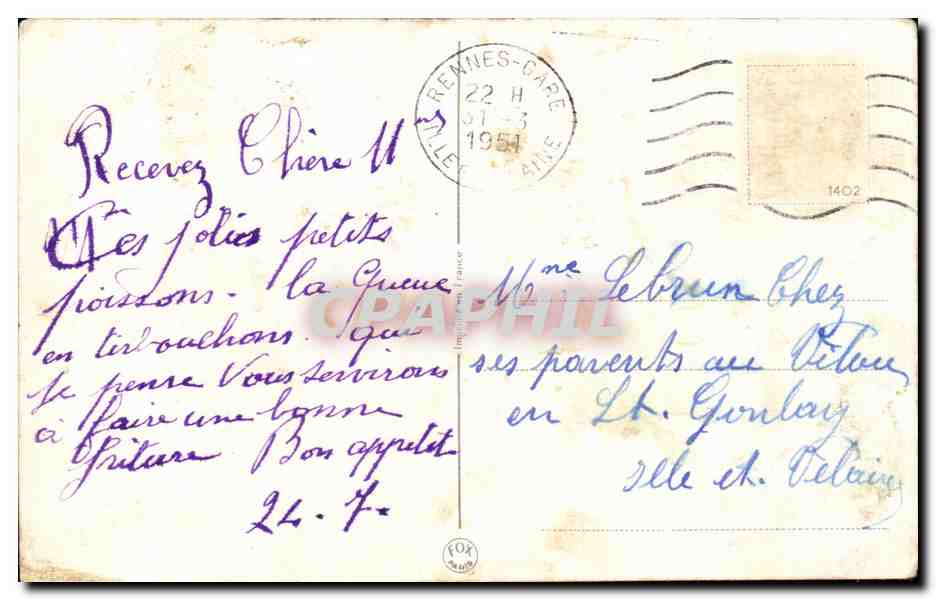 Recevez Chère Mme
Ces jolies petits
poissons. la Queue
en tir-ouchons. que
je pense Vous servirons
à faire une bonne
friture. Bon appetit
24. 7.
RENNES-GARE
22 H
31 -3
1951
ILLE AINE
1402
Imprimé en France
CPAPHIL
Mme Lebrun Chez
ses parents au
en St. Gonlay
Ille et. Vilaine
FOX
PARIS